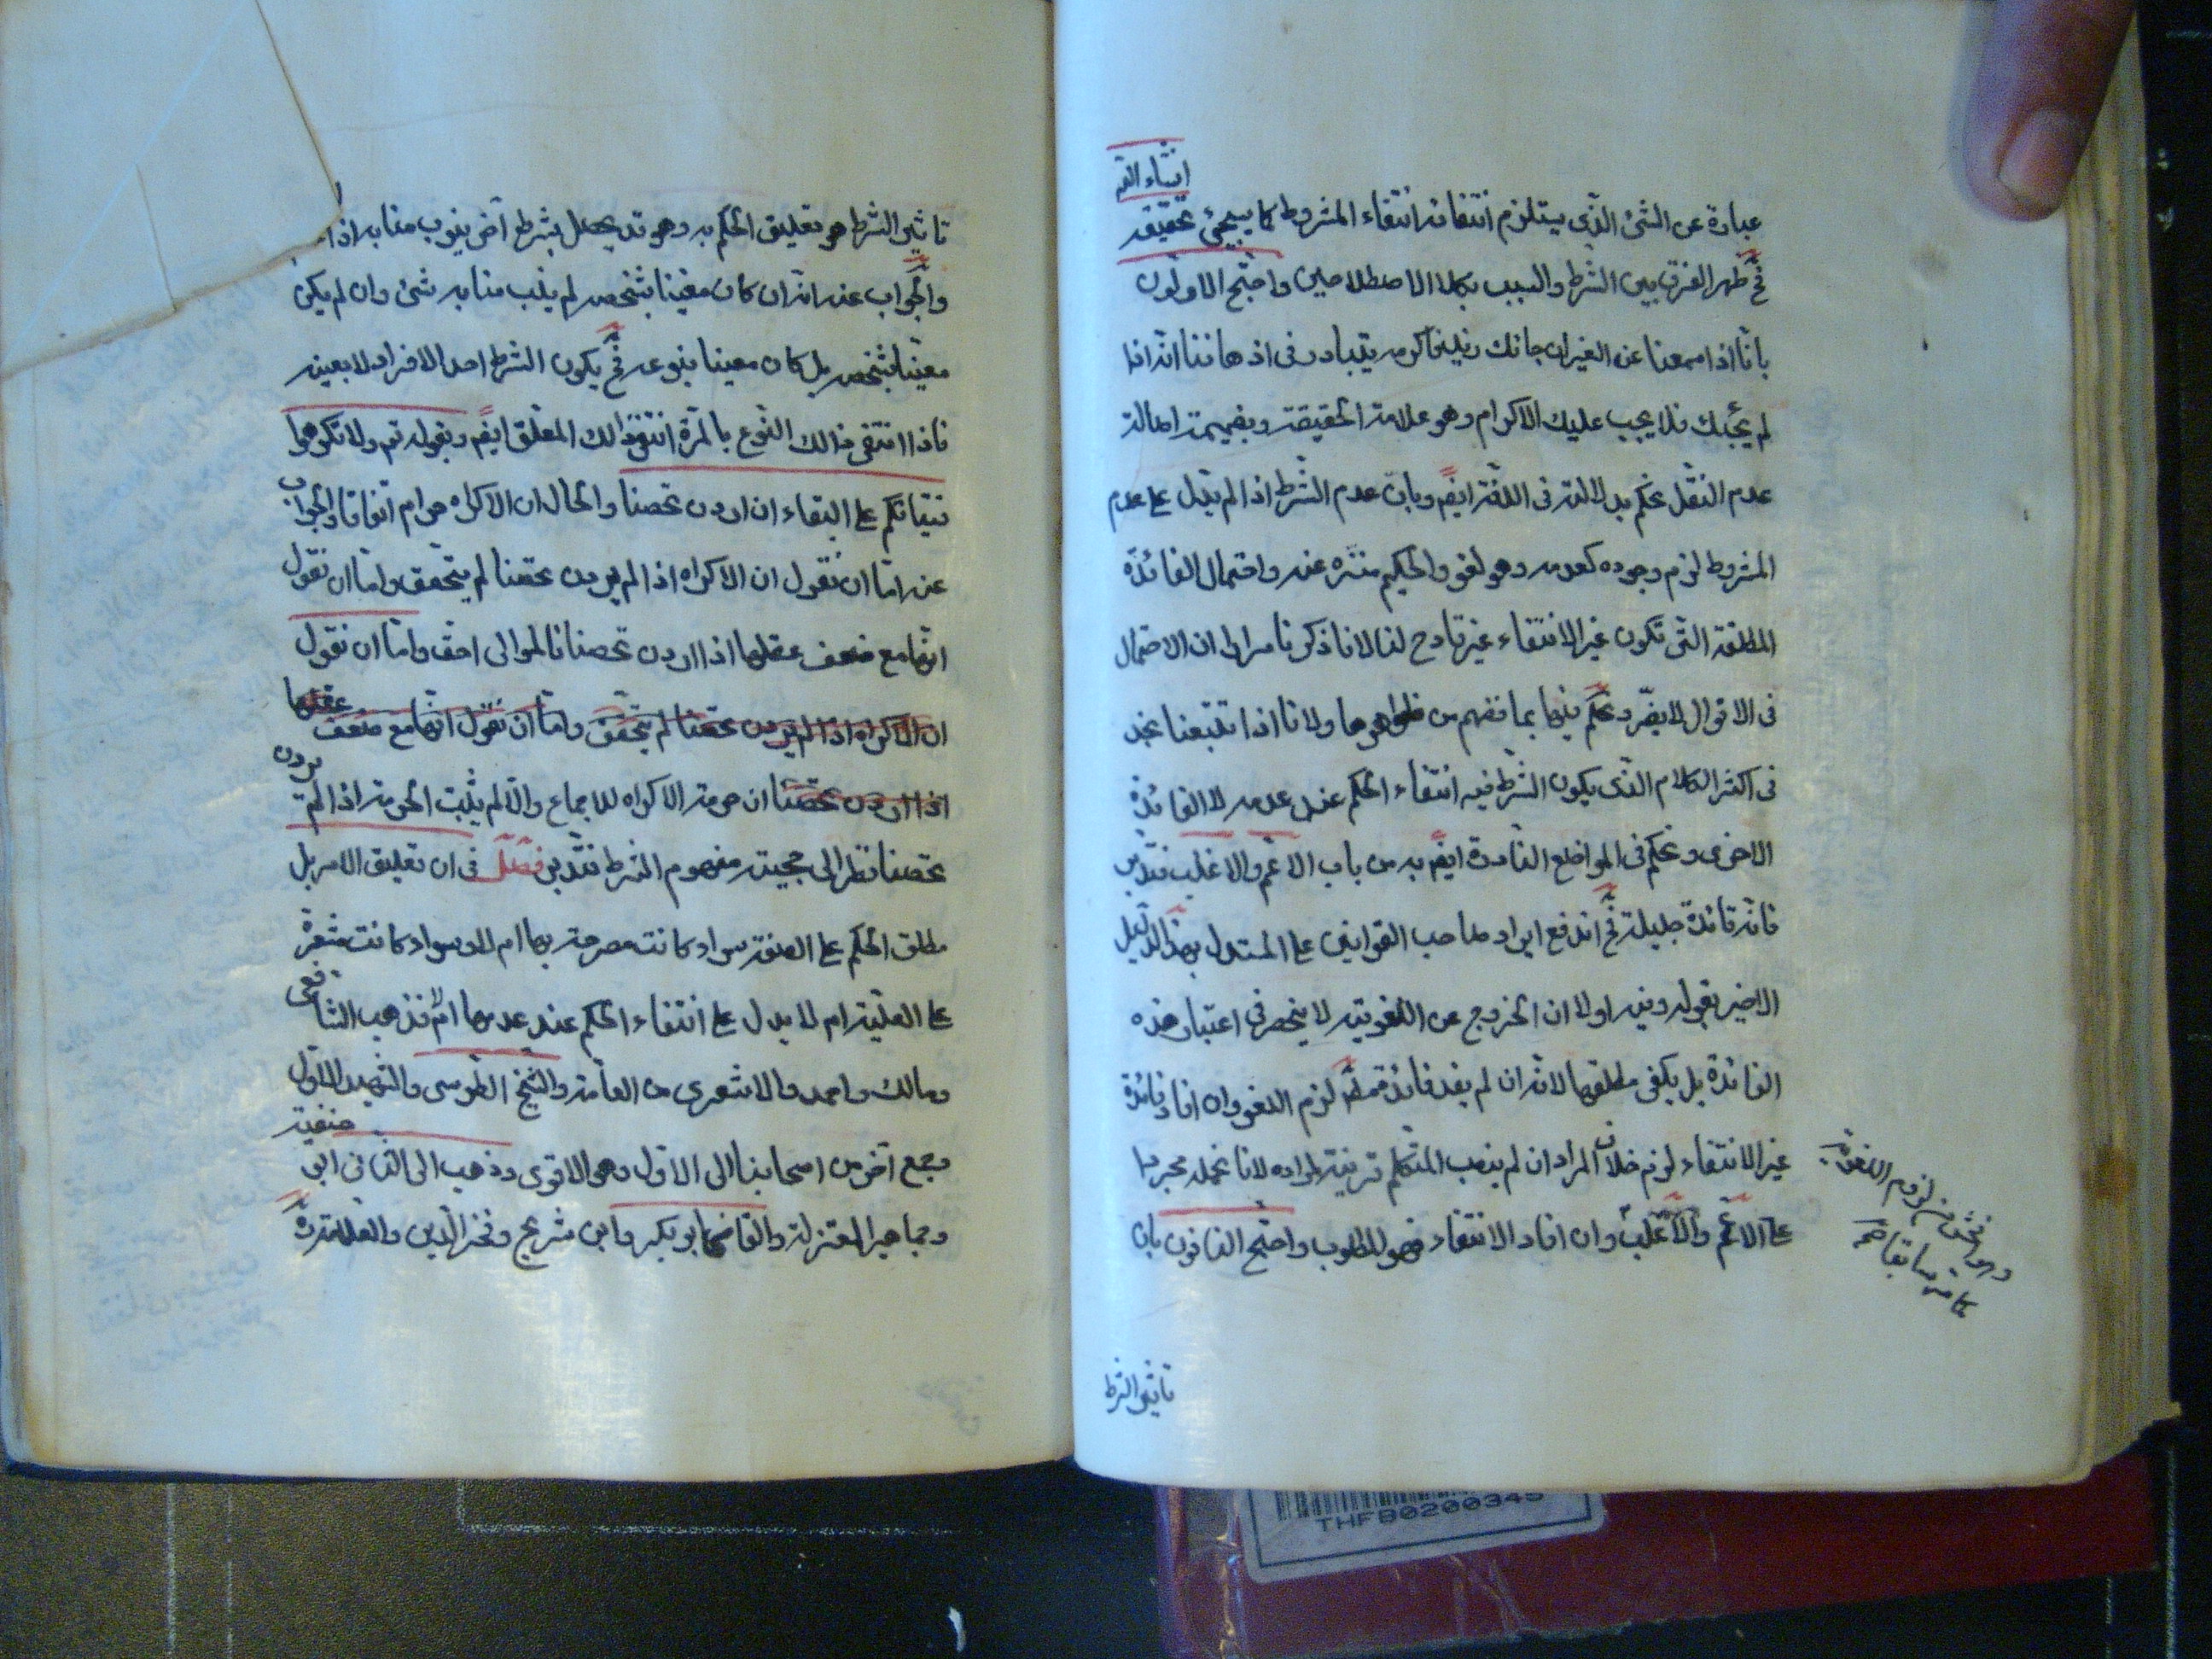 انشاء الله
عبارة عن الشئ الذى يستلزم انتفائه انتفاء المشروط كما سيجئ تحقيقه
فح ظهر الفرق بين الشرط والسبب بكلا الاصطلاحين واحتج الاولون
بانا اذا سمعنا عن الغير ان جائك زيد فاكرمه يتبادر فى اذهاننا انه اذا
لم يجئك فلا يجب عليك الاكرام وهو علامة الحقيقة وبضميمة اصالة
عدم النقل نحكم بدلالته فى اللغة ايضم وبان عدم الشرط اذا لم يدل على عدم
المشروط لزم وجوده كعدمه وهو لغو والحكيم منزه عنه واحتمال الفائدة
المطلقة التى تكون غير الانتفاء غير قادح لنا لانا ذكرنا مرارا ان الاحتمال
فى الاقوال لا يضر ونحكم فيها بما نفهم من ظواهرها ولانا اذا تتبعنا نجد
فى اكثر الكلام الذى يكون الشرط فيه انتفاء الحكم عند عدمه لا الفائدة
الاخرى ونحكم فى المواضع النادرة ايضم به من باب الاعم والاغلب فتدبر
فانه فائدة جليلة فح اندفع ايراد صاحب القوانين على المستدل بهذا الدليل
الاخير بقوله وفيه اولا ان الخروج عن اللغوية لا ينحصر فى اعتبار هذه
الفائدة بل يكفى مطلقها لانه ان لم يفد فائدة لزم اللغو وان افاد فائدة
غير الانتفاء لزم خلاف المراد ان لم ينصب المتكلم قرينة لمراده لانا نحمله مجردا
على الاعم والاغلب وان افاد الانتفاء فهو المطلوب واحتج النافون بان
من لزوم اللغوية
كما مر سابقا
تاثير الشرط
تاثير الشرط هو تعليق الحكم به وهو قد يحصل بشرط آخر ينوب منابه اذا
والجواب عنه انه ان كان معينا بشخصه لم ينب منابه شئ وان لم يكن
معينا بشخصه بل كان معينا بنوعه فح يكون الشرط احد الافراد لا بعينه
فاذا انتفى ذالك النوع بالمرة انتفى ذالك المعلق ايضم وبقوله تعم ولا تكرهوا
فتياتكم على البغاء ان اردن تحصنا والحال ان الاكراه حرام اتفاقا والجواب
عنه اما ان نقول ان الاكراه اذا لم يردن تحصنا لم يتحقق واما ان نقول
انها مع ضعف عقلها اذا اردن تحصنا فالموالى احق واما ان نقول
ان الاكراه اذا لم يردن تحصنا لم يتحقق واما ان نقول انها مع ضعف عقلها
اذا اردن تحصنا ان حرمة الاكراه للاجماع والا لم يثبت الحرمة اذا لم يردن
تحصنا نظرا الى حجية مفهوم الشرط فتدبر فصل فى ان تعليق الامر بل
مطلق الحكم على الصفة سواء كانت مصرحة بها ام لا وسواء كانت مشعرة
على العلية ام لا يدل على انتفاء الحكم عند عدمها ام لا فذهب الشافعى
ومالك واحمد والاشعرى من العامة والشيخ الطوسى والشهيد الاول
وجمع آخر من اصحابنا الى الاول وهو الاقوى وذهب الى الثانى ابى حنفية
وجماهير المعتزلة والقاضى ابو بكر وابن شريح وفخر الدين والعلامة ره
THFB0200345